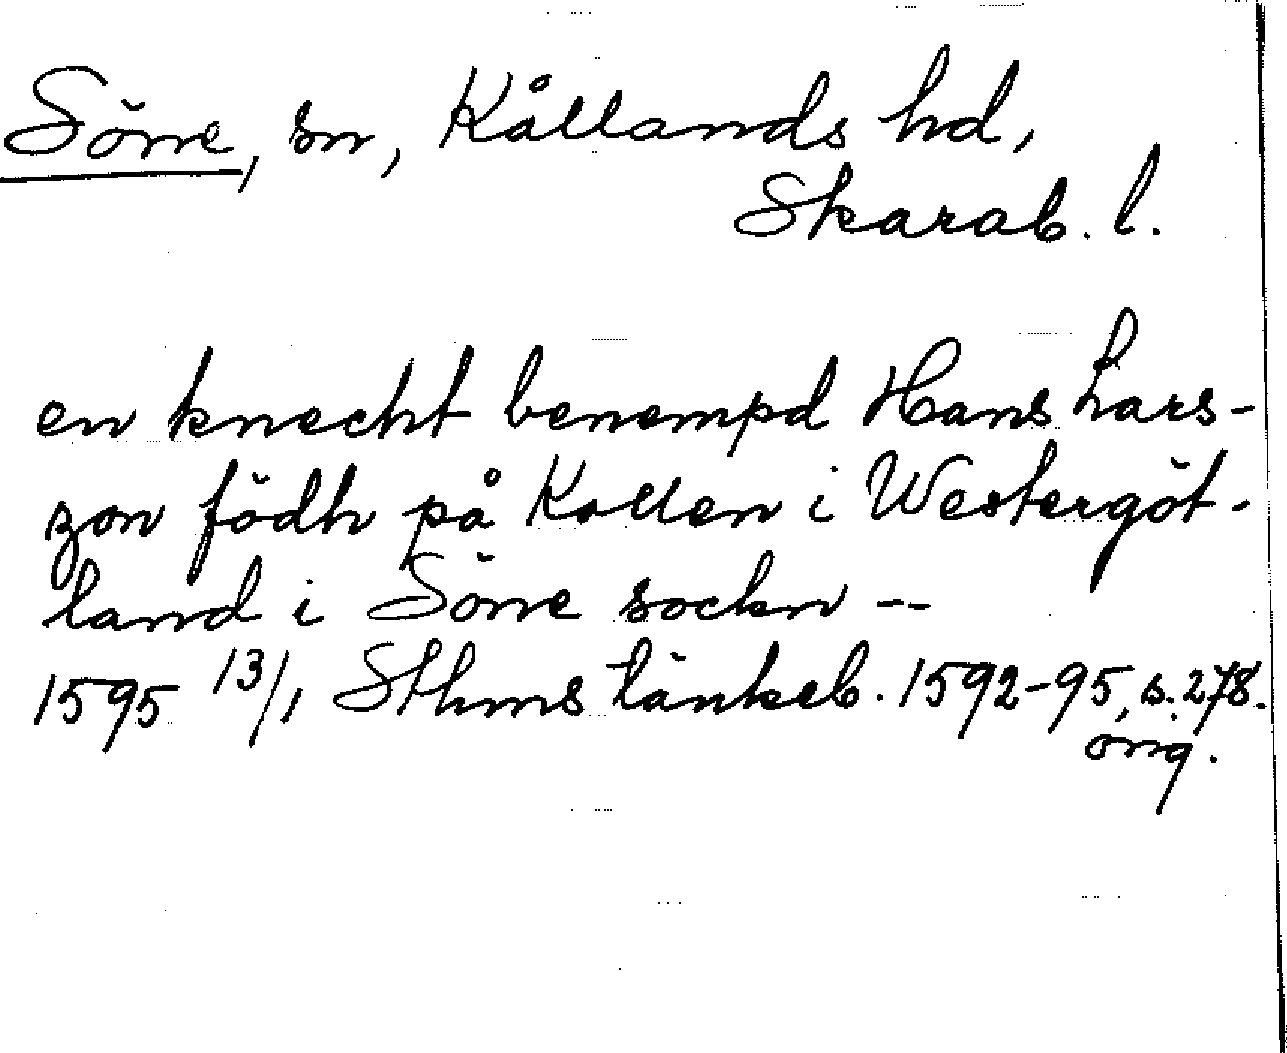 Sörne, sn, Kållands hd,
Skarab. l.
en knecht benempd Hans Lars-
zon födh på Kollen i Westergöt-
land i Sörne sockn --
1595 13/1 Sthms tänkeb. 1592-95, s. 278.
orig.